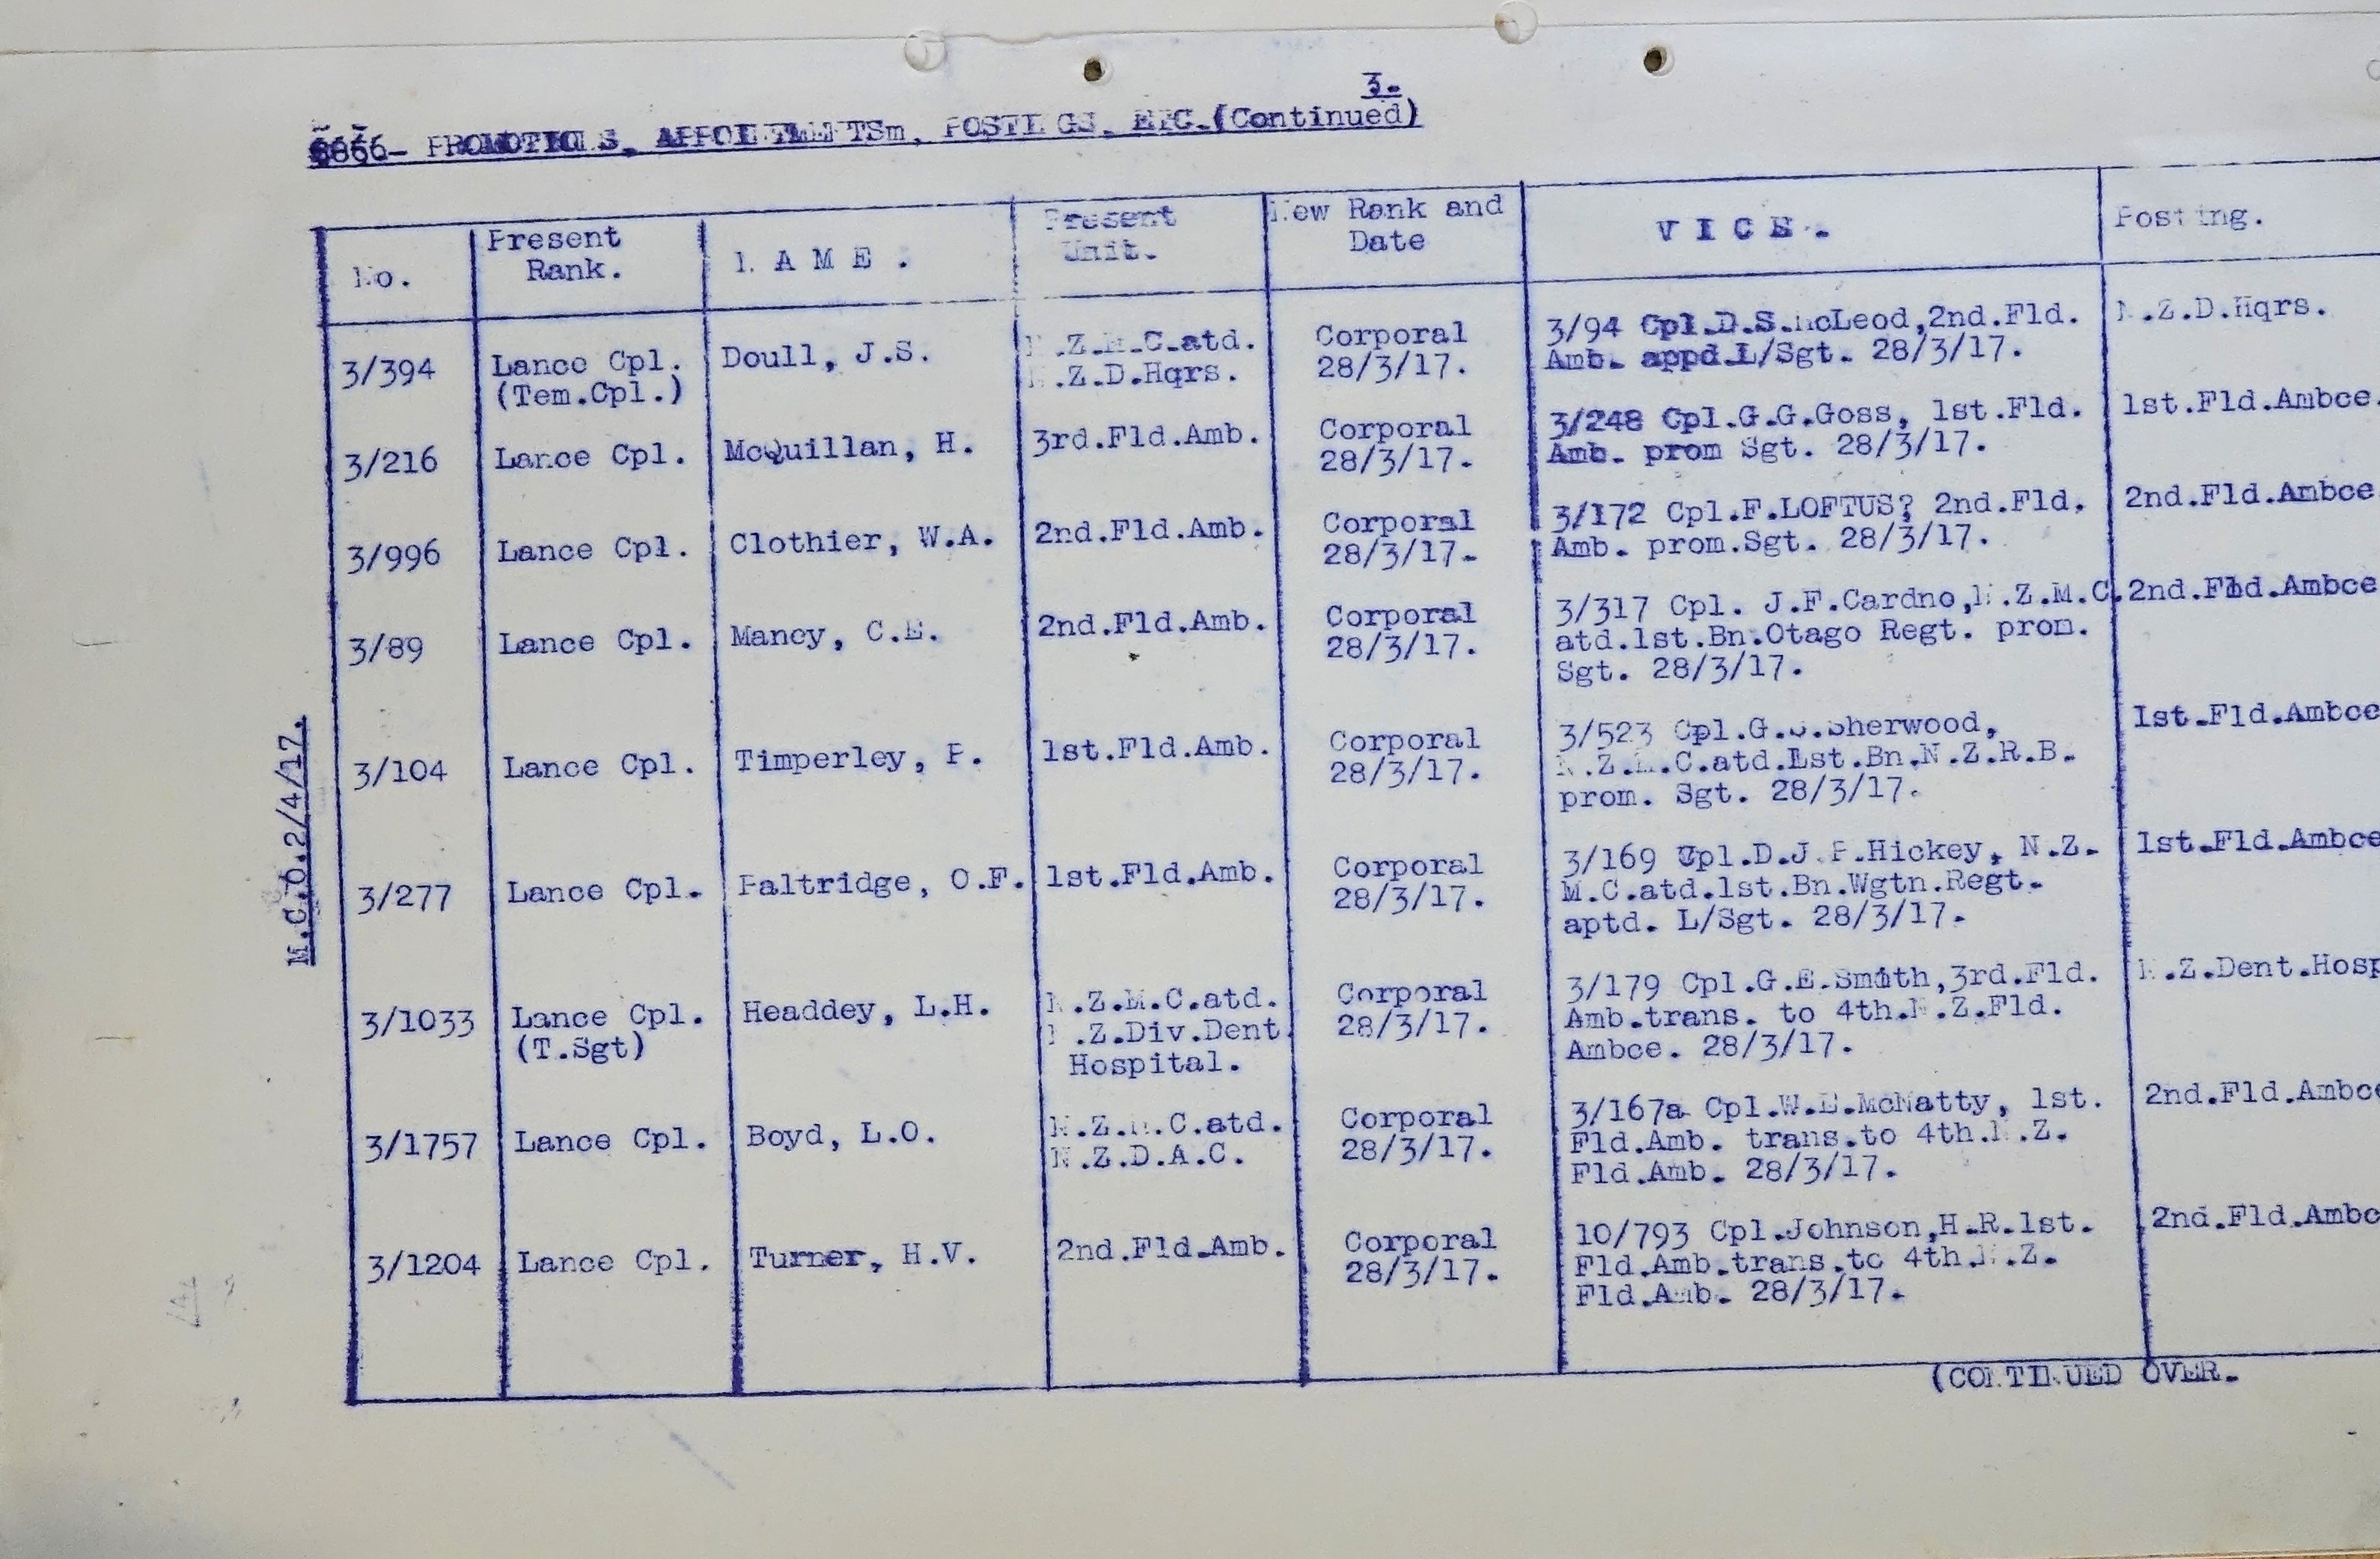 3.
PROMOTIONS, APPOINTMENTSm, POSTINGS, ETC.(Continued)
No. Present Rank. NAME. Present Unit. New Rank and Date VICE. Posting.
3/394 Lance Cpl. Doull, J.S. N.Z.M.C.atd. Corporal 3/94 Cpl.D.S.McLeod,2nd.Fld. N.Z.D.Hqrs.
(Tem.Cpl.) N.Z.D.Hqrs. 28/3/17. Amb. appd.L/Sgt. 28/3/17.
3/216 Lance Cpl. McQuillan, H. 3rd.Fld.Amb. Corporal 3/248 Cpl.G.G.Goss, 1st.Fld. 1st.Fld.Ambce.
28/3/17. Amb. prom Sgt. 28/3/17.
3/996 Lance Cpl. Clothier, W.A. 2nd.Fld.Amb. Corporal 3/172 Cpl.F.LOFTUS? 2nd.Fld. 2nd.Fld.Ambce
28/3/17. Amb. prom.Sgt. 28/3/17.
3/89 Lance Cpl. Mancy, C.E. 2nd.Fld.Amb. Corporal 3/317 Cpl. J.F.Cardno,N.Z.M.C. 2nd.Fld.Ambce
28/3/17. atd.1st.Bn.Otago Regt. prom.
Sgt. 28/3/17.
3/104 Lance Cpl. Timperley, P. 1st.Fld.Amb. Corporal 3/523 Cpl. Sherwood, 1st.Fld.Ambce
28/3/17. N.Z.M.C.atd.1st.Bn.N.Z.R.B.
prom. Sgt. 28/3/17.
3/277 Lance Cpl. Paltridge, O.F. 1st.Fld.Amb. Corporal 3/169 Cpl.D.J.P.Hickey, N.Z. 1st.Fld.Ambce
28/3/17. M.C.atd.1st.Bn.Wgtn.Regt.
aptd. L/Sgt. 28/3/17.
3/1033 Lance Cpl. Headdey, L.H. N.Z.M.C.atd. Corporal 3/179 Cpl.G.E.Smith,3rd.Fld. N.Z.Dent.Hosp
(T.Sgt) N.Z.Div.Dent. 28/3/17. Amb.trans. to 4th.N.Z.Fld.
Hospital. Ambce. 28/3/17.
3/1757 Lance Cpl. Boyd, L.O. N.Z.M.C.atd. Corporal 3/167a Cpl.W.E.McNatty, 1st. 2nd.Fld.Ambce
N.Z.D.A.C. 28/3/17. Fld.Amb. trans.to 4th.N.Z.
Fld.Amb. 28/3/17.
3/1204 Lance Cpl. Turner, H.V. 2nd.Fld.Amb. Corporal 10/793 Cpl.Johnson,H.R.1st. 2nd.Fld.Ambc
28/3/17. Fld.Amb.trans.to 4th.N.Z.
Fld.Amb. 28/3/17.
(CONTINUED OVER.
M.C.O.2/4/17.